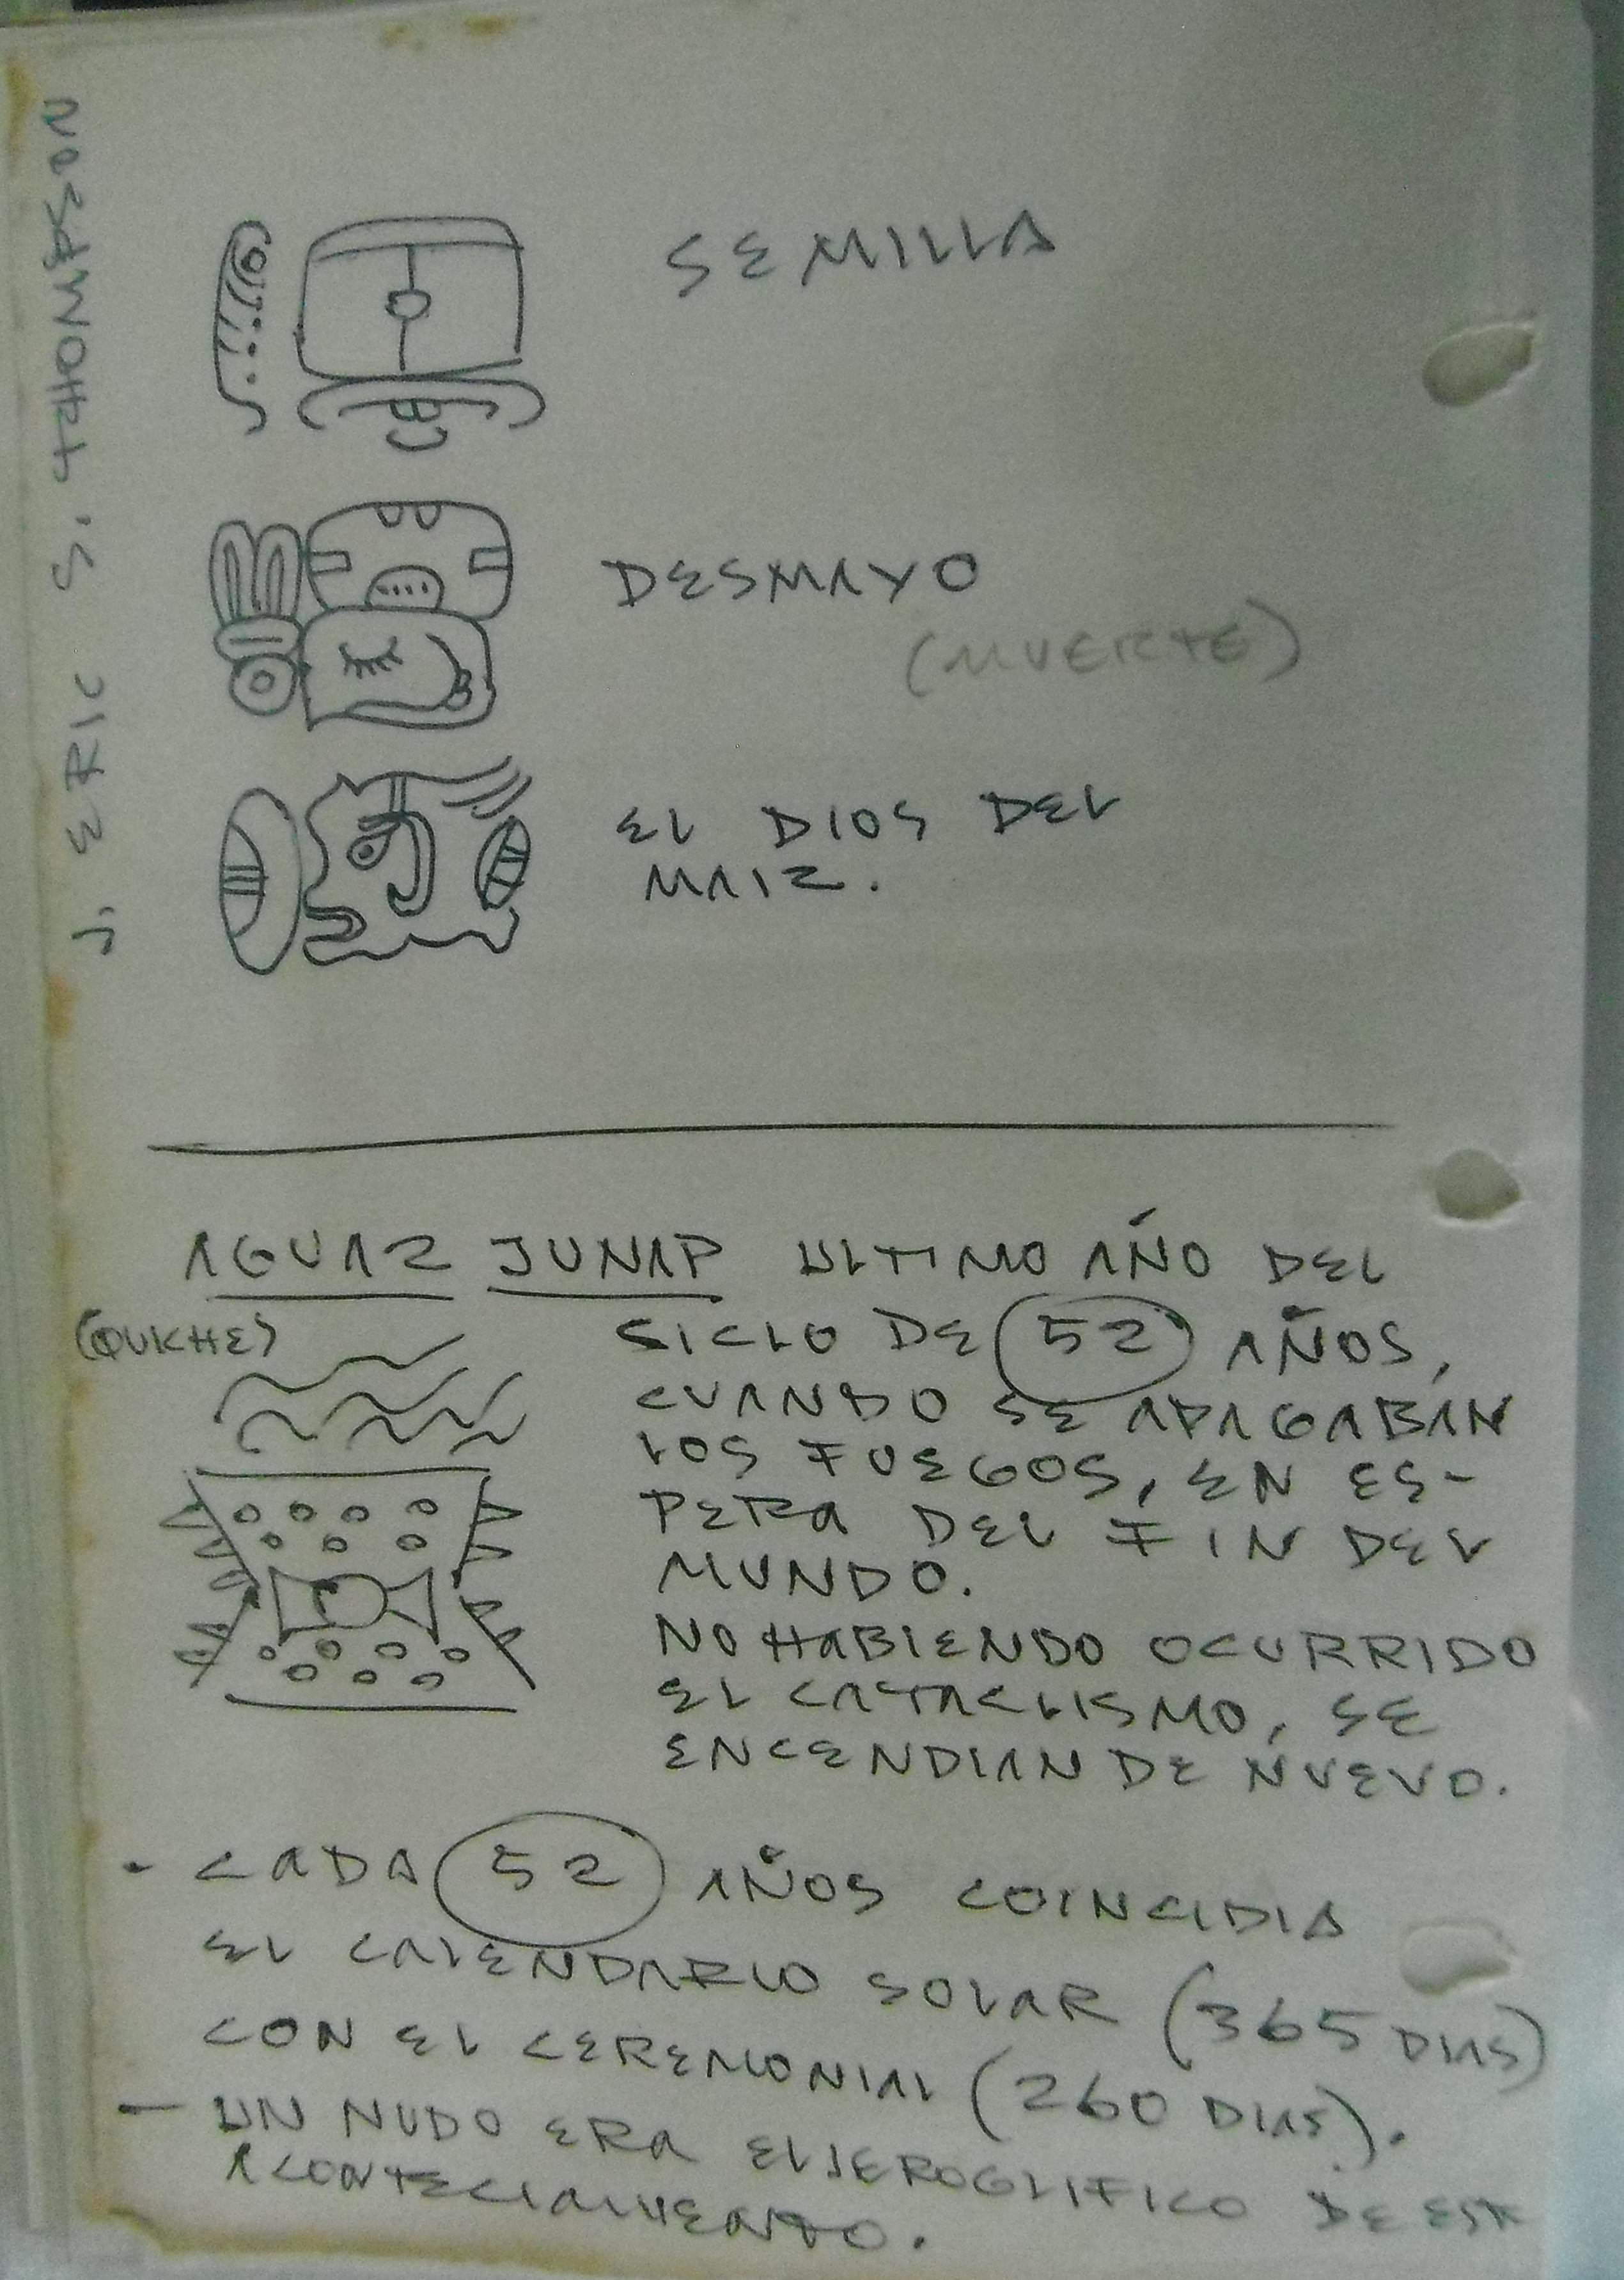 J. ERIC S. THOMPSON
SEMILLA
DESMAYO
(MUERTE)
EL DIOS DEL
MAIZ.
AGUAZ JUNAP ULTIMO AÑO DEL
(QUICHE)
SICLO DE 52 AÑOS,
CUANDO SE APAGABAN
LOS FUEGOS, EN ES-
PERA DEL FIN DEL
MUNDO.
NO HABIENDO OCURRIDO
EL CATACLISMO, SE
ENCENDIAN DE NUEVO.
- CADA 52 AÑOS COINCIDIA
EL CALENDARIO SOLAR (365 DIAS)
CON EL CEREMONIAL (260 DIAS).
- UN NUDO ERA EL JEROGLIFICO DE ESTE
ACONTECIMIENTO.